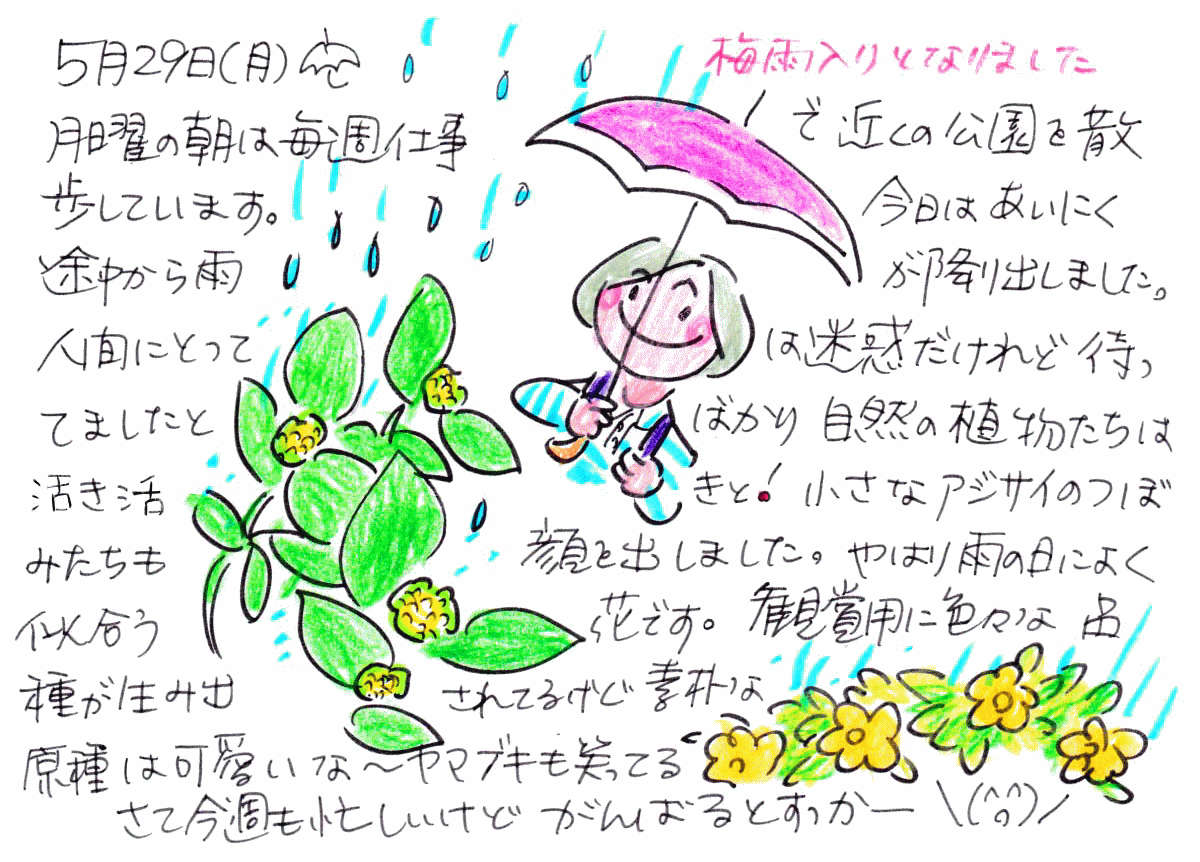 5月29日(月)
梅雨入りとなりました
月曜の朝は毎週仕事で近くの公園を散
歩しています。今日はあいにく
途中から雨が降り出しました。
人間にとっては迷惑だけれど待っ
てましたとばかり自然の植物たちは
活き活きと!小さなアジサイのつぼ
みたちも顔を出しました。やはり雨の日によく
似合う花です。観賞用に色々な品
種が生み出されてるけど素朴な
原種は可愛いな〜ヤマブキも笑ってる
さて今週も忙しいけどがんばるとすっかー \(^^)/